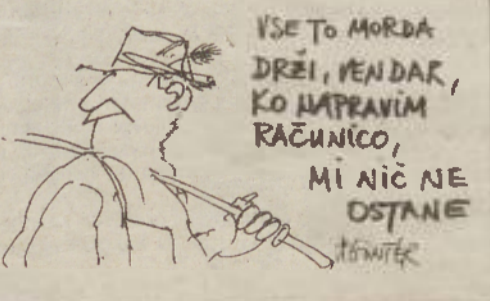 VSE TO MORDA
DRŽI, VENDAR,
KO NAPRAVIM
RAČUNICO,
MI NIČ NE
OSTANE